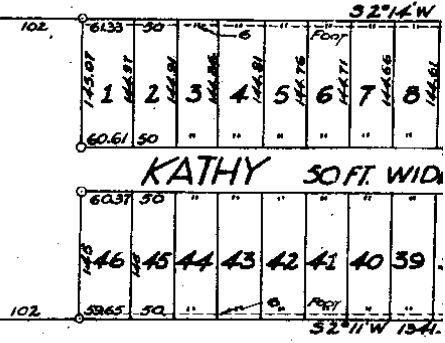 S 2°14'W
102 61.33 50 " " " 6 FOOT " "
145.07 1 144.97 2 144.91 3 144.86 4 144.81 5 144.76 6 144.71 7 144.66 8 144.61
60.61 50 " " " " " "
KATHY 50 FT. WIDE
60.37 50 " " " " " "
145 46 145 45 44 43 42 41 40 39
102 59.65 50 " " 6 FOOT " "
S 2°11'W